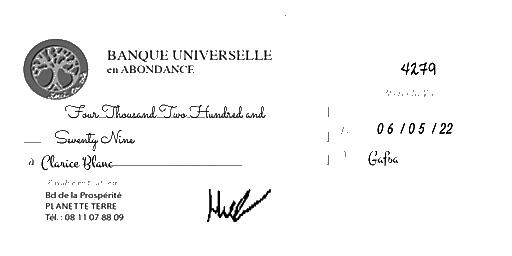 BANQUE UNIVERSELLE
en ABONDANCE
4279
Four Thousand Two Hundred and
Seventy Nine
06/05/22
à Clarice Blanc
Gafsa
Bd de la Prospérité
PLANETTE TERRE
Tél. : 08 11 07 88 09